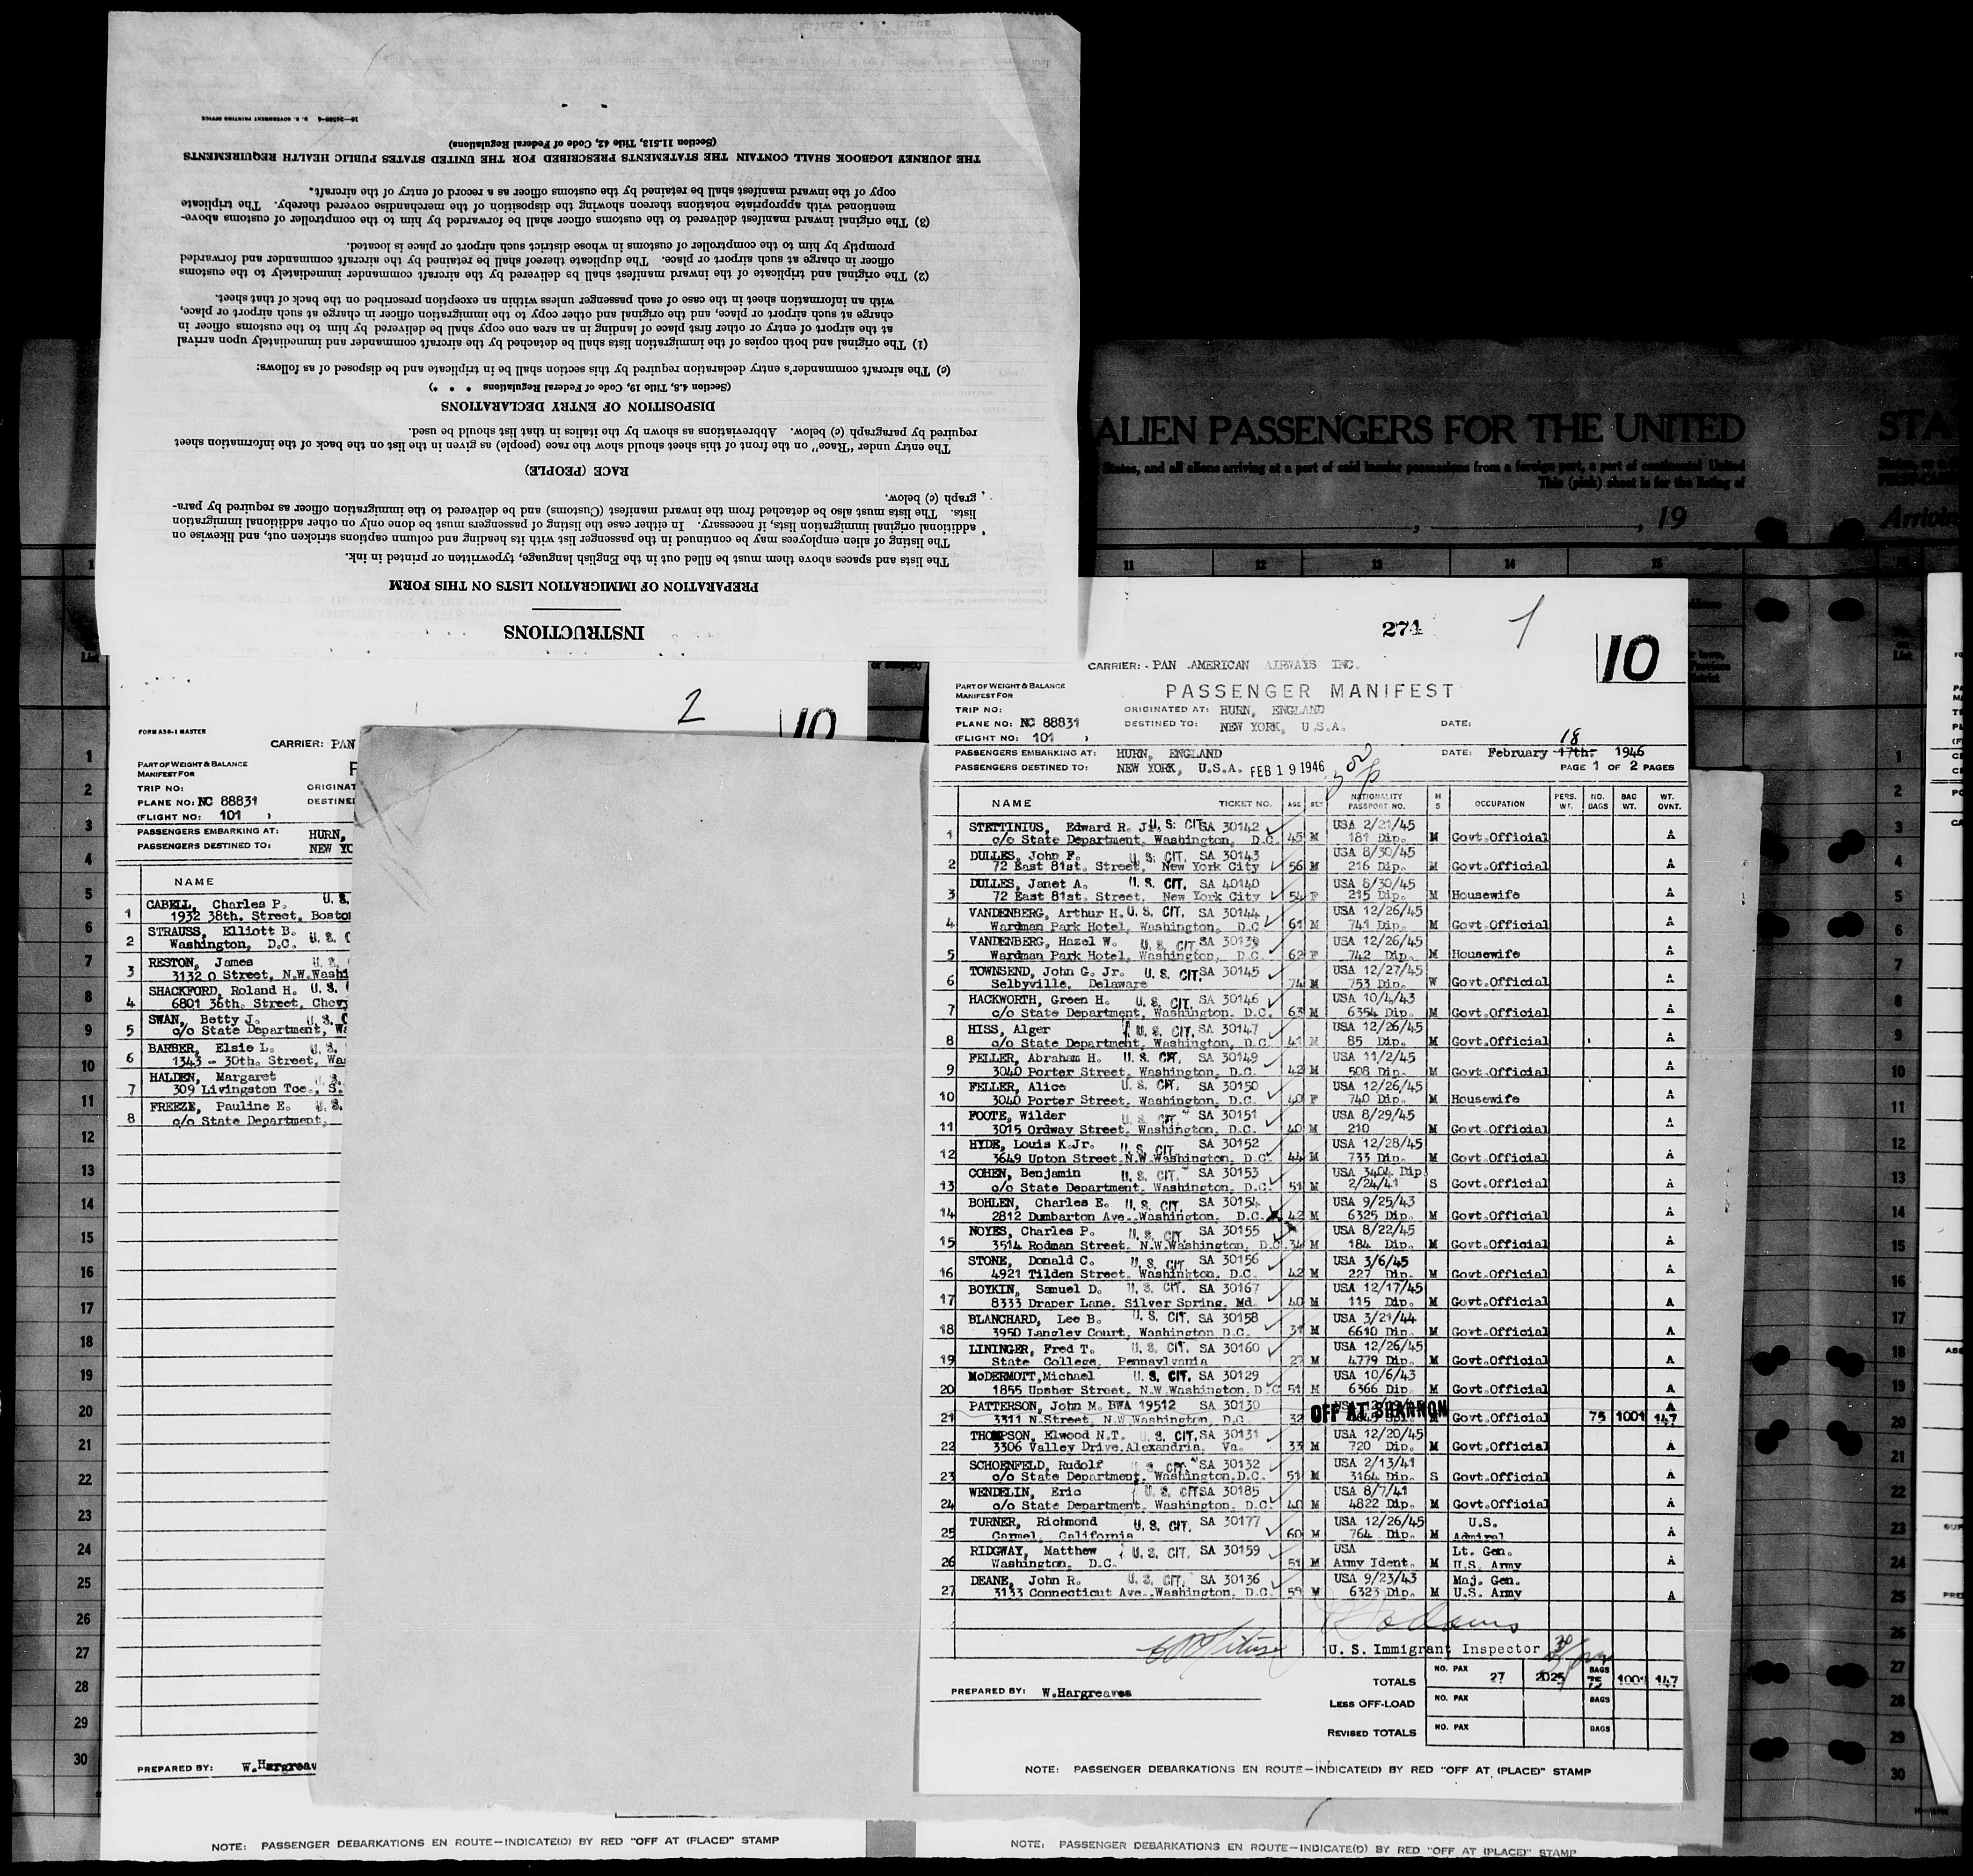 INSTRUCTIONS
PREPARATION OF IMMIGRATION LISTS ON THIS FORM
The lists and spaces above them must be filled out in the English language, typewritten or printed in ink.
The listing of alien employees may be continued in the passenger list with its heading and column captions stricken out, and likewise on
additional original immigration lists, if necessary. In either case the listing of passengers must be done only on other additional immigration
lists. The lists must also be detached from the inward manifest (Customs) and be delivered to the immigration officer as required by para-
graph (c) below.
RACE (PEOPLE)
The entry under "Race" on the front of this sheet should show the race (people) as given in the list on the back of the information sheet
required by paragraph (c) below. Abbreviations as shown by the italics in that list should be used.
DISPOSITION OF ENTRY DECLARATIONS
(Section 4.8, Title 19, Code of Federal Regulations * * *)
(c) The aircraft commander's entry declaration required by this section shall be in triplicate and be disposed of as follows:
(1) The original and both copies of the immigration lists shall be detached by the aircraft commander and immediately upon arrival
at the airport of entry or other first place of landing in an area one copy shall be delivered by him to the customs officer in
charge at such airport or place, and the original and other copy to the immigration officer in charge at such airport or place,
with an information sheet in the case of each passenger unless within an exception prescribed on the back of that sheet.
(2) The original and triplicate of the inward manifest shall be delivered by the aircraft commander immediately to the customs
officer in charge at such airport or place. The duplicate thereof shall be retained by the aircraft commander and forwarded
promptly by him to the comptroller of customs in whose district such airport or place is located.
(3) The original inward manifest delivered to the customs officer shall be forwarded by him to the comptroller of customs above-
mentioned with appropriate notations thereon showing the disposition of the merchandise covered thereby. The triplicate
copy of the inward manifest shall be retained by the customs officer as a record of entry of the aircraft.
THE JOURNEY LOGBOOK SHALL CONTAIN THE STATEMENTS PRESCRIBED FOR THE UNITED STATES PUBLIC HEALTH REQUIREMENTS
(Section 11.513, Title 42, Code of Federal Regulations)
U. S. GOVERNMENT PRINTING OFFICE
ALIEN PASSENGERS FOR THE UNITED
STA
States, and all aliens arriving at a port of said insular possessions from a foreign port, a port of continental United
This (pink) sheet is for the listing of
, 19
Arrivin
11 12 13 14 15
2
10
FORM A36-1 MASTER
CARRIER: PAN
PART OF WEIGHT & BALANCE
MANIFEST FOR
TRIP NO: ORIGINAT
PLANE NO: NC 88831 DESTINE
(FLIGHT NO: 101 )
PASSENGERS EMBARKING AT: HURN,
PASSENGERS DESTINED TO: NEW YO
NAME
1 CABELL, Charles P. U. S.
1932 38th. Street, Bosto
2 STRAUSS, Elliott B. U. S. C
Washington, D.C.
3 RESTON, James U. S.
3132 O Street, N.W.Washi
4 SHACKFORD, Roland H. U. S.
6801 36th. Street, Chevy
5 SWAN, Betty J. U. S. C
c/o State Department, Wa
6 BARBER, Elsie L. U. S.
1343 - 30th. Street, Was
7 HALDEN, Margaret U. S.
309 Livingston Tce., S.
8 FREEZE, Pauline E. U. S.
c/o State Department,
PREPARED BY: W.Hargreav
NOTE: PASSENGER DEBARKATIONS EN ROUTE—INDICATE(D) BY RED "OFF AT (PLACE)" STAMP
274
1
10
CARRIER: PAN AMERICAN AIRWAYS INC.
PART OF WEIGHT & BALANCE
MANIFEST FOR
PASSENGER MANIFEST
TRIP NO: ORIGINATED AT: HURN, ENGLAND
PLANE NO: NC 88831 DESTINED TO: NEW YORK, U.S.A. DATE:
(FLIGHT NO: 101 )
18
PASSENGERS EMBARKING AT: HURN, ENGLAND DATE: February 17th. 1946
PASSENGERS DESTINED TO: NEW YORK, U.S.A. FEB 19 1946 PAGE 1 OF 2 PAGES
NAME TICKET NO. AGE SEX NATIONALITY PASSPORT NO. M S OCCUPATION PERS. WT. NO. BAGS BAG WT. WT. OVNT.
1 STETTINIUS, Edward R. Jr. U. S. CIT. SA 30142 USA 2/21/45
c/o State Department, Washington, D.C. 45 M 181 Dip. M Govt.Official A
2 DULLES, John F. U. S. CIT. SA 30143 USA 8/30/45
72 East 81st. Street, New York City 56 M 216 Dip. M Govt.Official A
3 DULLES, Janet A. U. S. CIT. SA 40140 USA 8/30/45
72 East 81st. Street, New York City 54 F 215 Dip. M Housewife A
4 VANDENBERG, Arthur H. U. S. CIT. SA 30144 USA 12/26/45
Wardman Park Hotel, Washington, D.C. 61 M 741 Dip. M Govt.Official A
5 VANDENBERG, Hazel W. U. S. CIT. SA 30139 USA 12/26/45
Wardman Park Hotel, Washington, D.C. 62 F 742 Dip. M Housewife A
6 TOWNSEND, John G. Jr. U. S. CIT. SA 30145 USA 12/27/45
Selbyville, Delaware 74 M 753 Dip. W Govt.Official A
7 HACKWORTH, Green H. U. S. CIT. SA 30146 USA 10/4/43
c/o State Department, Washington, D.C. 63 M 6354 Dip. M Govt.Official A
8 HISS, Alger U. S. CIT. SA 30147 USA 12/26/45
c/o State Department, Washington, D.C. 41 M 85 Dip. M Govt.Official A
9 FELLER, Abraham H. U. S. CIT. SA 30149 USA 11/2/45
3040 Porter Street, Washington, D.C. 42 M 508 Dip. M Govt.Official A
10 FELLER, Alice U. S. CIT. SA 30150 USA 12/26/45
3040 Porter Street, Washington, D.C. 40 F 740 Dip. M Housewife A
11 FOOTE, Wilder U. S. CIT. SA 30151 USA 8/29/45
3015 Ordway Street, Washington, D.C. 40 M 210 M Govt.Official A
12 HYDE, Louis K.Jr. U. S. CIT. SA 30152 USA 12/28/45
3649 Upton Street,N.W.Washington, D.C. 44 M 733 Dip. M Govt.Official A
13 COHEN, Benjamin U. S. CIT. SA 30153 USA 3404 Dip
c/o State Department, Washington, D.C. 51 M 2/24/41 S Govt.Official A
14 BOHLEN, Charles E. U. S. CIT. SA 30154 USA 9/25/43
2812 Dumbarton Ave.,Washington, D.C. 42 M 6325 Dip. M Govt.Official A
15 NOYES, Charles P. U. S. CIT. SA 30155 USA 8/22/45
3514 Rodman Street, N.W.Washington, D.C. 34 M 184 Dip. M Govt.Official A
16 STONE, Donald C. U. S. CIT. SA 30156 USA 3/6/45
4921 Tilden Street, Washington, D.C. 42 M 227 Dip. M Govt.Official A
17 BOYKIN, Samuel D. U. S. CIT. SA 30167 USA 12/17/45
8333 Draper Lane, Silver Spring, Md. 40 M 115 Dip. M Govt.Official A
18 BLANCHARD, Lee B. U. S. CIT. SA 30158 USA 3/21/44
3950 Langley Court, Washington D.C. 31 M 6610 Dip. M Govt.Official A
19 LININGER, Fred T. U. S. CIT. SA 30160 USA 12/26/45
State College, Pennsylvania 27 M 4779 Dip. M Govt.Official A
20 McDERMOTT,Michael U. S. CIT. SA 30129 USA 10/6/43
1855 Upsher Street, N.W.Washington, D.C 51 M 6366 Dip. M Govt.Official A
21 PATTERSON, John M. BWA 19512 SA 30130 A
3311 N.Street, N.W Washington, D.C. 32 OFF AT SHANNON Govt.Official 75 1001 147
22 THOMPSON, Elwood N.T. U. S. CIT. SA 30131 USA 12/20/45
3306 Valley Drive,Alexandria, Va. 33 M 720 Dip. M Govt.Official A
23 SCHOENFELD, Rudolf U. S. CIT. SA 30132 USA 2/13/41
c/o State Department, Washington,D.C. 51 M 3164 Dip. S Govt.Official A
24 WENDELIN, Eric U. S. CIT. SA 30185 USA 8/7/41
c/o State Department, Washington, D.C. 40 M 4822 Dip. M Govt.Official A
25 TURNER, Richmond U. S. CIT. SA 30177 USA 12/26/45 U.S.
Carmel, California 60 M 764 Dip. M Admiral A
26 RIDGWAY, Matthew U. S. CIT. SA 30159 USA Lt. Gen.
Washington, D.C. 51 M Army Ident. M U.S. Army A
27 DEANE, John R. U. S. CIT. SA 30136 USA 9/23/43 Maj. Gen.
3133 Connecticut Ave.,Washington, D.C. 59 M 6323 Dip. M U.S. Army A
U. S. Immigrant Inspector
TOTALS NO. PAX 27 2025 BAGS 75 1001 147
PREPARED BY: W.Hargreaves
LESS OFF-LOAD NO. PAX BAGS
REVISED TOTALS NO. PAX BAGS
NOTE: PASSENGER DEBARKATIONS EN ROUTE—INDICATE(D) BY RED "OFF AT (PLACE)" STAMP
NOTE: PASSENGER DEBARKATIONS EN ROUTE—INDICATE(D) BY RED "OFF AT (PLACE)" STAMP